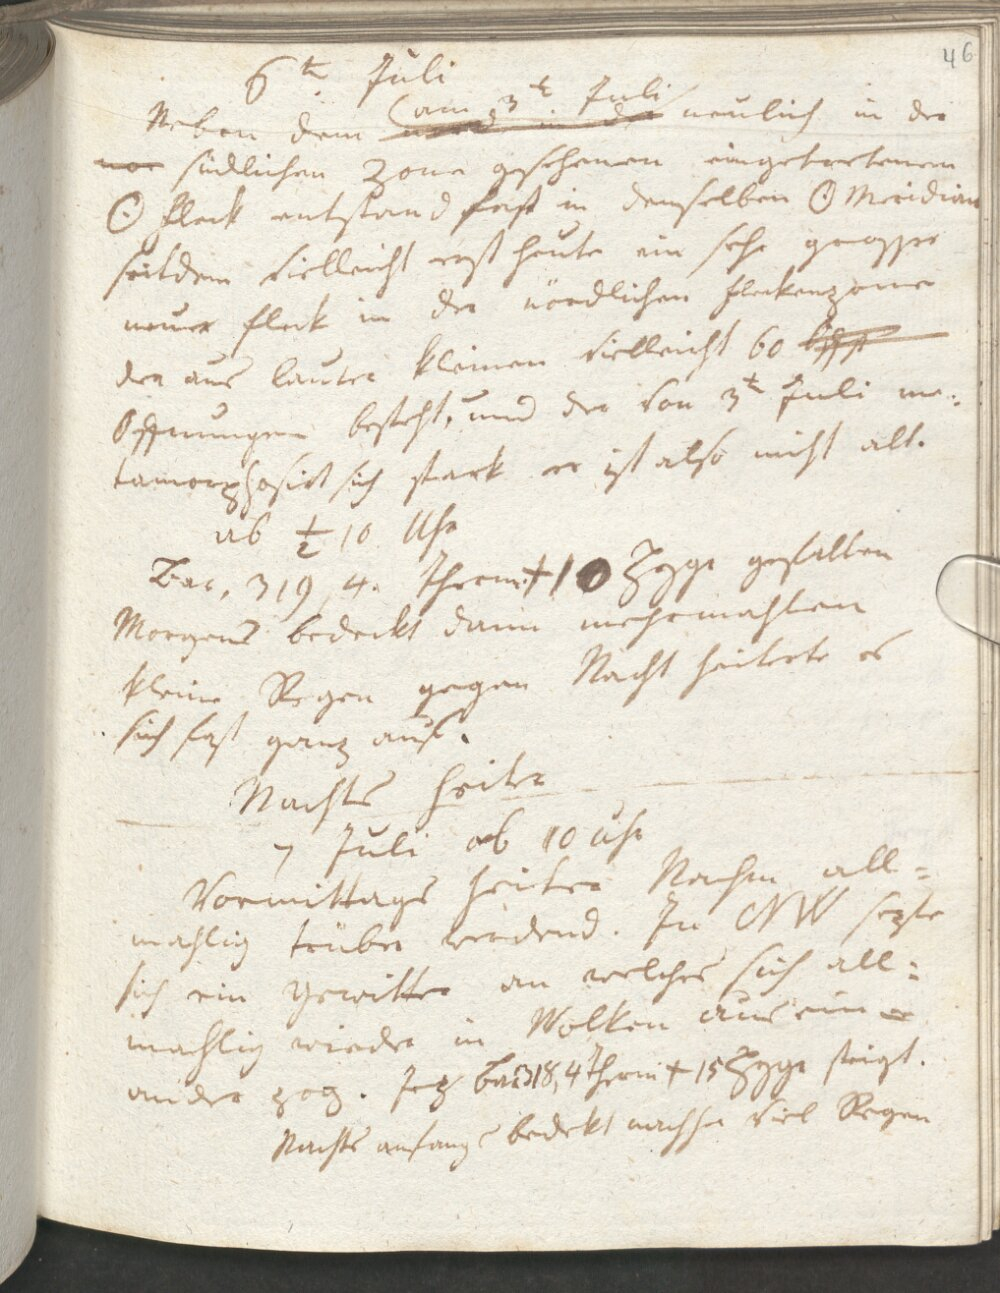 46
6t. Juli
Neben dem (am 3t. Juli neulich in der
südlichen Zone gesehenen eingetretenen
☉ fleck entstand fast in demselben ☉ Meridian
seitdem vielleicht erst heute ein sehr grosser
neuer fleck in der nördlichen fleckenzone
der aus lauter kleinen vielleicht 60
Öffnungen besteht, und der von 3t Juli me:
tamorphosirt sich stark er ist also nicht alt.
ab ½ 10 Uhr
Bar, 319, 4. Therm. + 10 Hygr gefallen
Morgens bedeckt dann mehrmahlen
kleine Regen gegen Nacht heiterte es
sich fast ganz auf.
Nachts heiter
7 Juli ab 10 uhr
Vormittags heiter Nachm all=
mahlig trüber werdend. In NW sezte
sich ein Gewitter an welches sich all:
mahlig wieder in Wolken aus ein
ander zog. Jez Bar 318,4 Therm + 15 Hygr steigt.
Nachts anfangs bedekt nachher viel Regen